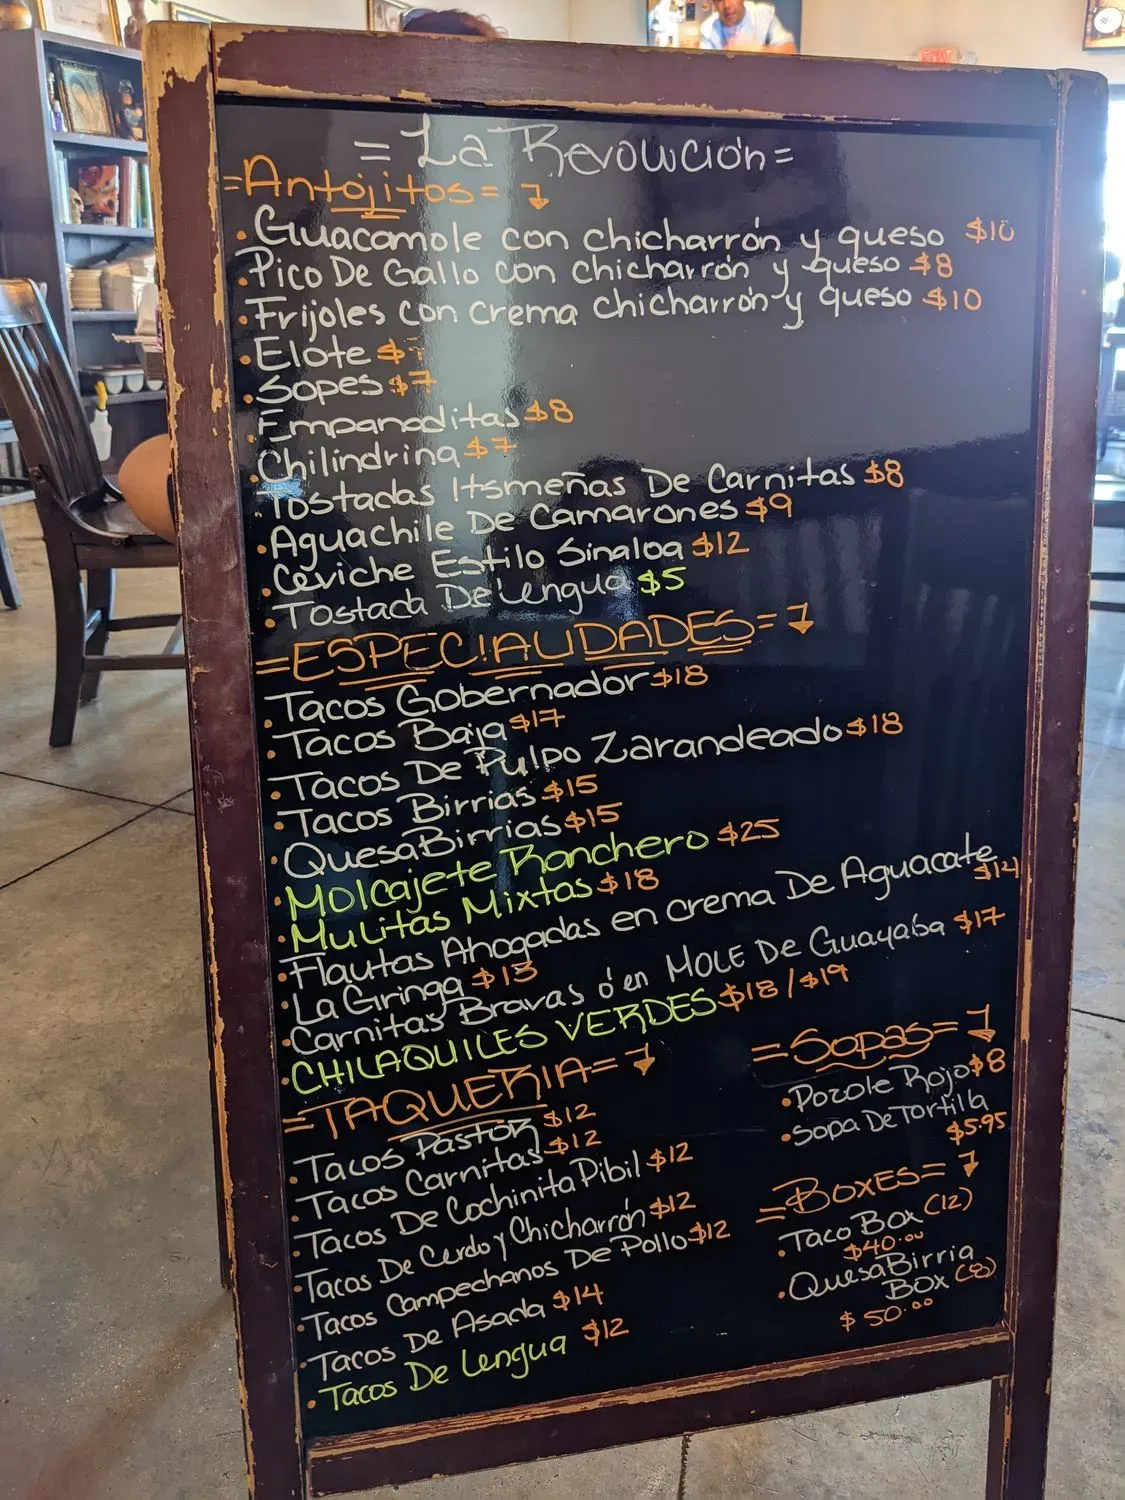 = La Revolución =
= Antojitos =
• Guacamole con chicharrón y queso $10
• Pico De Gallo con chicharrón y queso $8
• Frijoles con crema chicharrón y queso $10
• Elote $
• Sopes $7
• Empanaditas $8
• Chilindrina $7
• Tostadas Itsmeñas De Carnitas $8
• Aguachile De Camarones $9
• Ceviche Estilo Sinaloa $12
• Tostada De Lengua $5
= ESPECIALIDADES =
• Tacos Gobernador $18
• Tacos Baja $17
• Tacos De Pulpo Zarandeado $18
• Tacos Birrias $15
• QuesaBirrias $15
• Molcajete Ranchero $25
• Mulitas Mixtas $18
• Flautas Ahogadas en crema De Aguacate $14
• La Gringa $13
• Carnitas Bravas ó en MOLE De Guayaba $17
• CHILAQUILES VERDES $18 / $19
= TAQUERIA =
• Tacos Pastor $12
• Tacos Carnitas $12
• Tacos De Cochinita Pibil $12
• Tacos De Cerdo y Chicharrón $12
• Tacos Campechanos De Pollo $12
• Tacos De Asada $14
• Tacos De Lengua $12
= Sopas =
• Pozole Rojo $8
• Sopa De Tortilla
$5.95
= Boxes =
• Taco Box (12)
$40.00
• QuesaBirria
Box (8)
$50.00